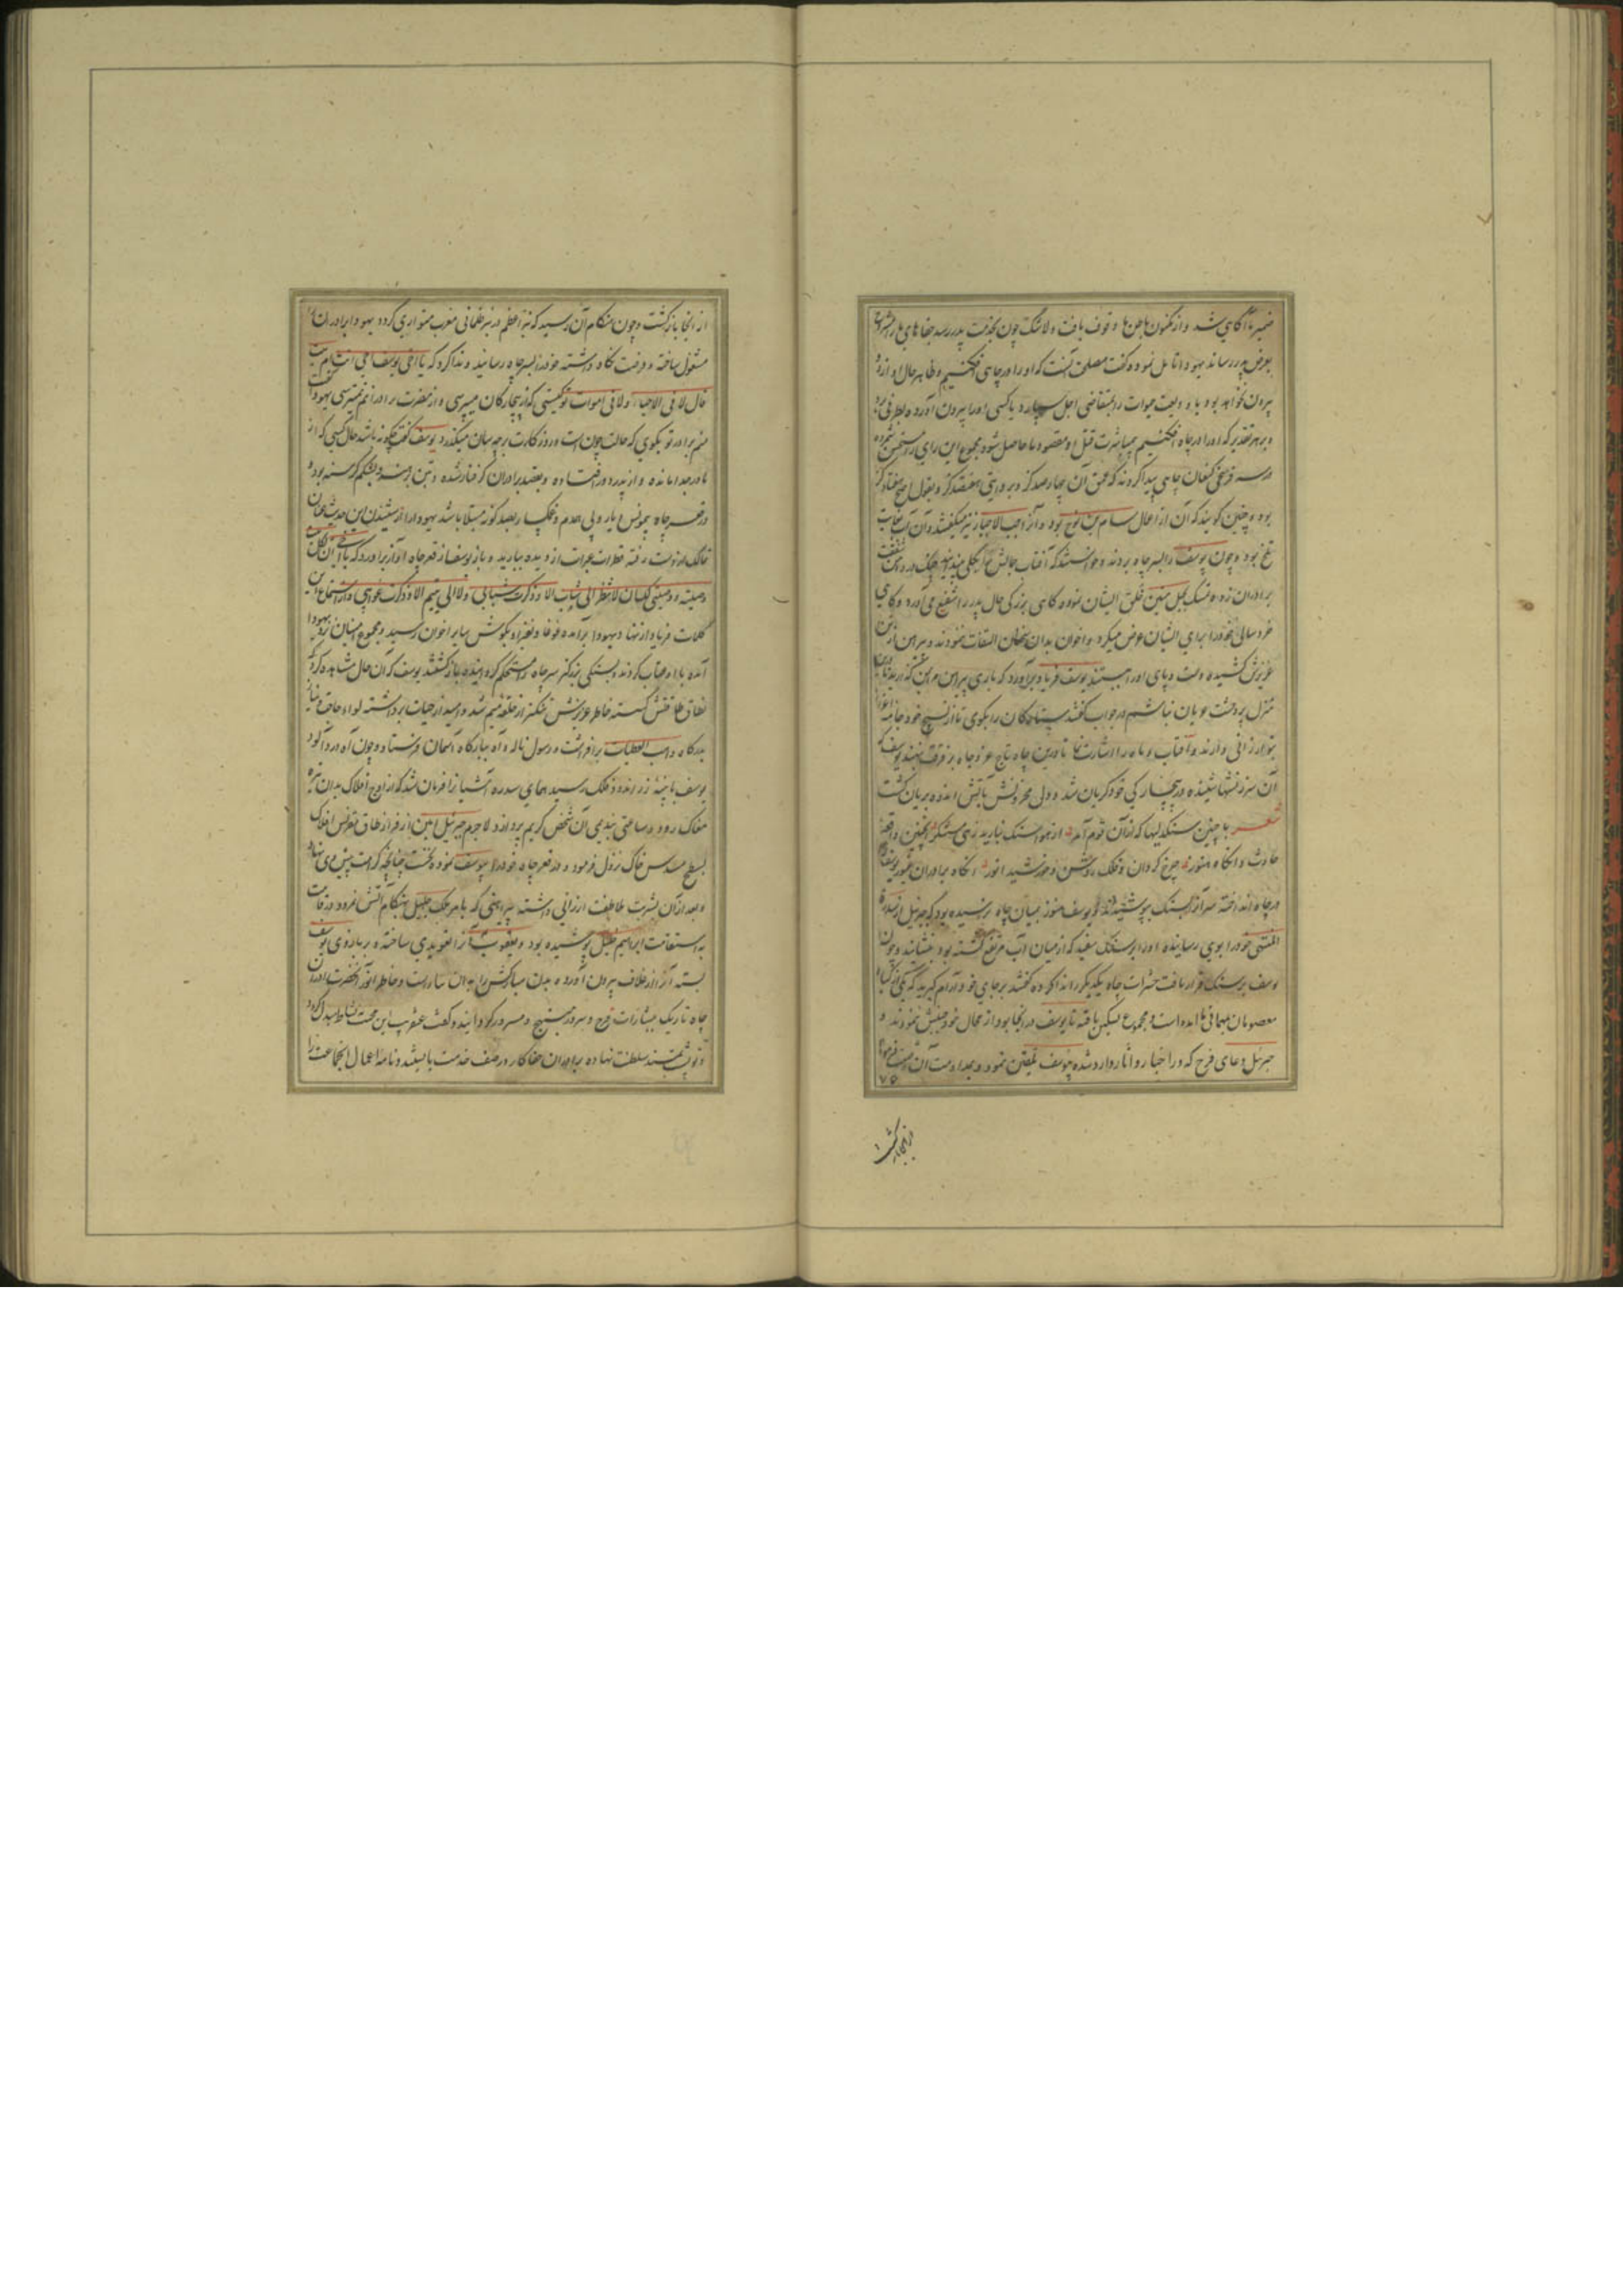 ضمیر ما آگاهی شد و از مکنون باطن ما وقوف یافت ولاشک چون بخدمت پدر رسد جفاهای
بعرض پدر رساند یهودا تامل نموده گفت مصلحت آنست که او را در چاهی افکنیم و ظاهر حال او از دو
بیرون نخواهد بود یا ودیعت حیوات را بمتقاضی اجل سپارد یا کسی او را بیرون آورده بطرفی برد
و بر هر تقدیر که او را در چاه افکنیم بی مباشرت قتل او مقصود ما حاصل شود مجموع این رای را مستحسن شمرده
در سه فرسخی کنعان چاهی پیدا کردند که عمق آن چهار صد گز و بروایتی هفتصد گز و بقول اصح هفتاد گز
بود و چنین گویند که آن از اعمال سام بن نوح بود و آنرا جب الاحزان نیز میگفتند و آن آب بغایت
تلخ بود و چون یوسف را بسر چاه بردند و خواستند که آفتاب جمالش را چنگ در دامن شفقت
برادران زده تمسک بحبل متین تملق ایشان نموده گاهی بزرگی حال پدر را شفیع می آورد و گاهی
خرد سالی خود را برای ایشان عرض میکرد و اخوان بدان سخنان التفات ننمودند و پیراهن از تن
عزیزش کشیده دست و پای او را ببستند یوسف فریاد برآورد که باری پیراهن من بمن گذارید تا درین
منزل پر وحشت عریان نباشم در جواب گفتند ستارگان را بگوی تا از نسیج خود جامه
بتو ارزانی دارند و آفتاب و ماه را اشارت نما تا درین چاه تاج عز و جاه بر فرقت نهند یوسف که
آن سرزنشها شنید در بیچارگی خود گریان شد و دل محزونش بآتش اندوه بریان گشت
شعر با چنین سنگدلیها که از آن قوم آمد از هوا سنگ نبارید زهی مستنکر اینچنین واقعهٔ
حادث و انگاه هنوز چرخ گردان و فلک روشن و خورشید انور انگاه برادران غیور یوسف را
در چاه انداخته سر آنرا بسنگ بپوشیدند و یوسف هنوز بمیان چاه نرسیده بود که جبرئیل از سدرة
المنتهی خود را بوی رسانیده او را بر سنگ سفید که از میان آب مرتفع گشته بود بنشانید و چون
یوسف بر سنگ قرار یافت حشرات چاه یکدیگر را ندا کرده گفتند بر جای خود آرام گیرید که یکی از
معصومان بمهمانی ما آمده است و مجموع تسکین یافته تا یوسف در آنجا بود از محال خود جنبش ننمودند و
جبرئیل دعای فرح که در اخبار و آثار وارد شده یوسف تلقین نمود و بمداومت آن
۷۵
از آنجا بازگشت
از آنجا بازگشت و چون هنگام آن رسید که نیر اعظم در ظلمانی مغرب متواری گردد یهودا برادران را
مشغول ساخته و فرصت نگاه داشته خود را بسر چاه رسانید و ندا کرد که یا اخی یوسف احی انت ام میت
قال لا فی الاحیاء ولا فی اموات تو کیستی که از بیچارگان میپرسی و از حضرت برادرانم نمیترسی یهودا گفت
منم برادر تو بگوی که حالت چون است و روزگارت بر چه سان میگذرد یوسف گفت چگونه باشد حال کسی که از
مادر جدا مانده و از پدر دور افتاده و بقصد برادران گرفتار شده و بتن برهنه و بشکم گرسنه بود
در قعر چاه بی مونس و یار و بی همدم و غمگسار بصد گونه مبتلا باشد یهودا را از شنیدن این حدیث عنان
تمالک از دست رفته قطرات عبرات از دیده ببارید و باز یوسف از قعر چاه آواز برآورد که یا اخی ان لکل میت
وصیته و وصیتی الیک ان لا تنظر الی شاب الا و ذکرت شبابی ولا الی یتیم الا و ذکرت غربتی و از استماع این
کلمات فریاد از نهاد یهودا برآمده غوغا و نفیر او بگوش سایر اخوان رسید و مجموع ایشان نزد یهودا
آمده با او عتاب کردند و بسنگی بزرگتر سر چاه را مستحکم گردانیده بازگشتند یوسف که آن حال مشاهده کرد
نطاق طاقتش گسسته خاطر عزیزش تنگتر از حلقهٔ میم شد و امید از حیات برداشته لواء حاجت و نیاز
بدرگاه واهب العطیات برافراشت و رسول ناله و آه ببارگاه آسمان فرستاد و چون آه دردآلود
یوسف بنهٔ فلک رسید همای سدره آشیانرا فرمان شد که از اوج افلاک بدان تیره
مغاک رود و ساعتی بندیمی آن شخص کریم پردازد لاجرم جبرئیل امین از فراز طاق مقرنس افلاک
بسطح مسدس خاک نزول فرمود و در قعر چاه خود را بیوسف نموده
و بعد از آن بشربت ملاطفت ارزانی داشته پیراهنی که بامر ملک جلیل هنگام آتش نمرود در قامت
با استقامت ابراهیم خلیل پوشیده بود و یعقوب آنرا تعویذی ساخته بر بازوی یوسف
بسته آنرا از غلاف بیرون آورده بدن مبارکش را بدان بیاراست و خاطر انور آنحضرت را در آن
چاه تاریک ببشارات فرح و سرور مبتهج و مسرور گردانید و گفت عنقریب این محنت بنشاط مبدل گردد
و تو پشت بمسند سلطنت نهاده برادران جفاکار در صف خدمت بایستند و نامهٔ اعمال آن جماعت را